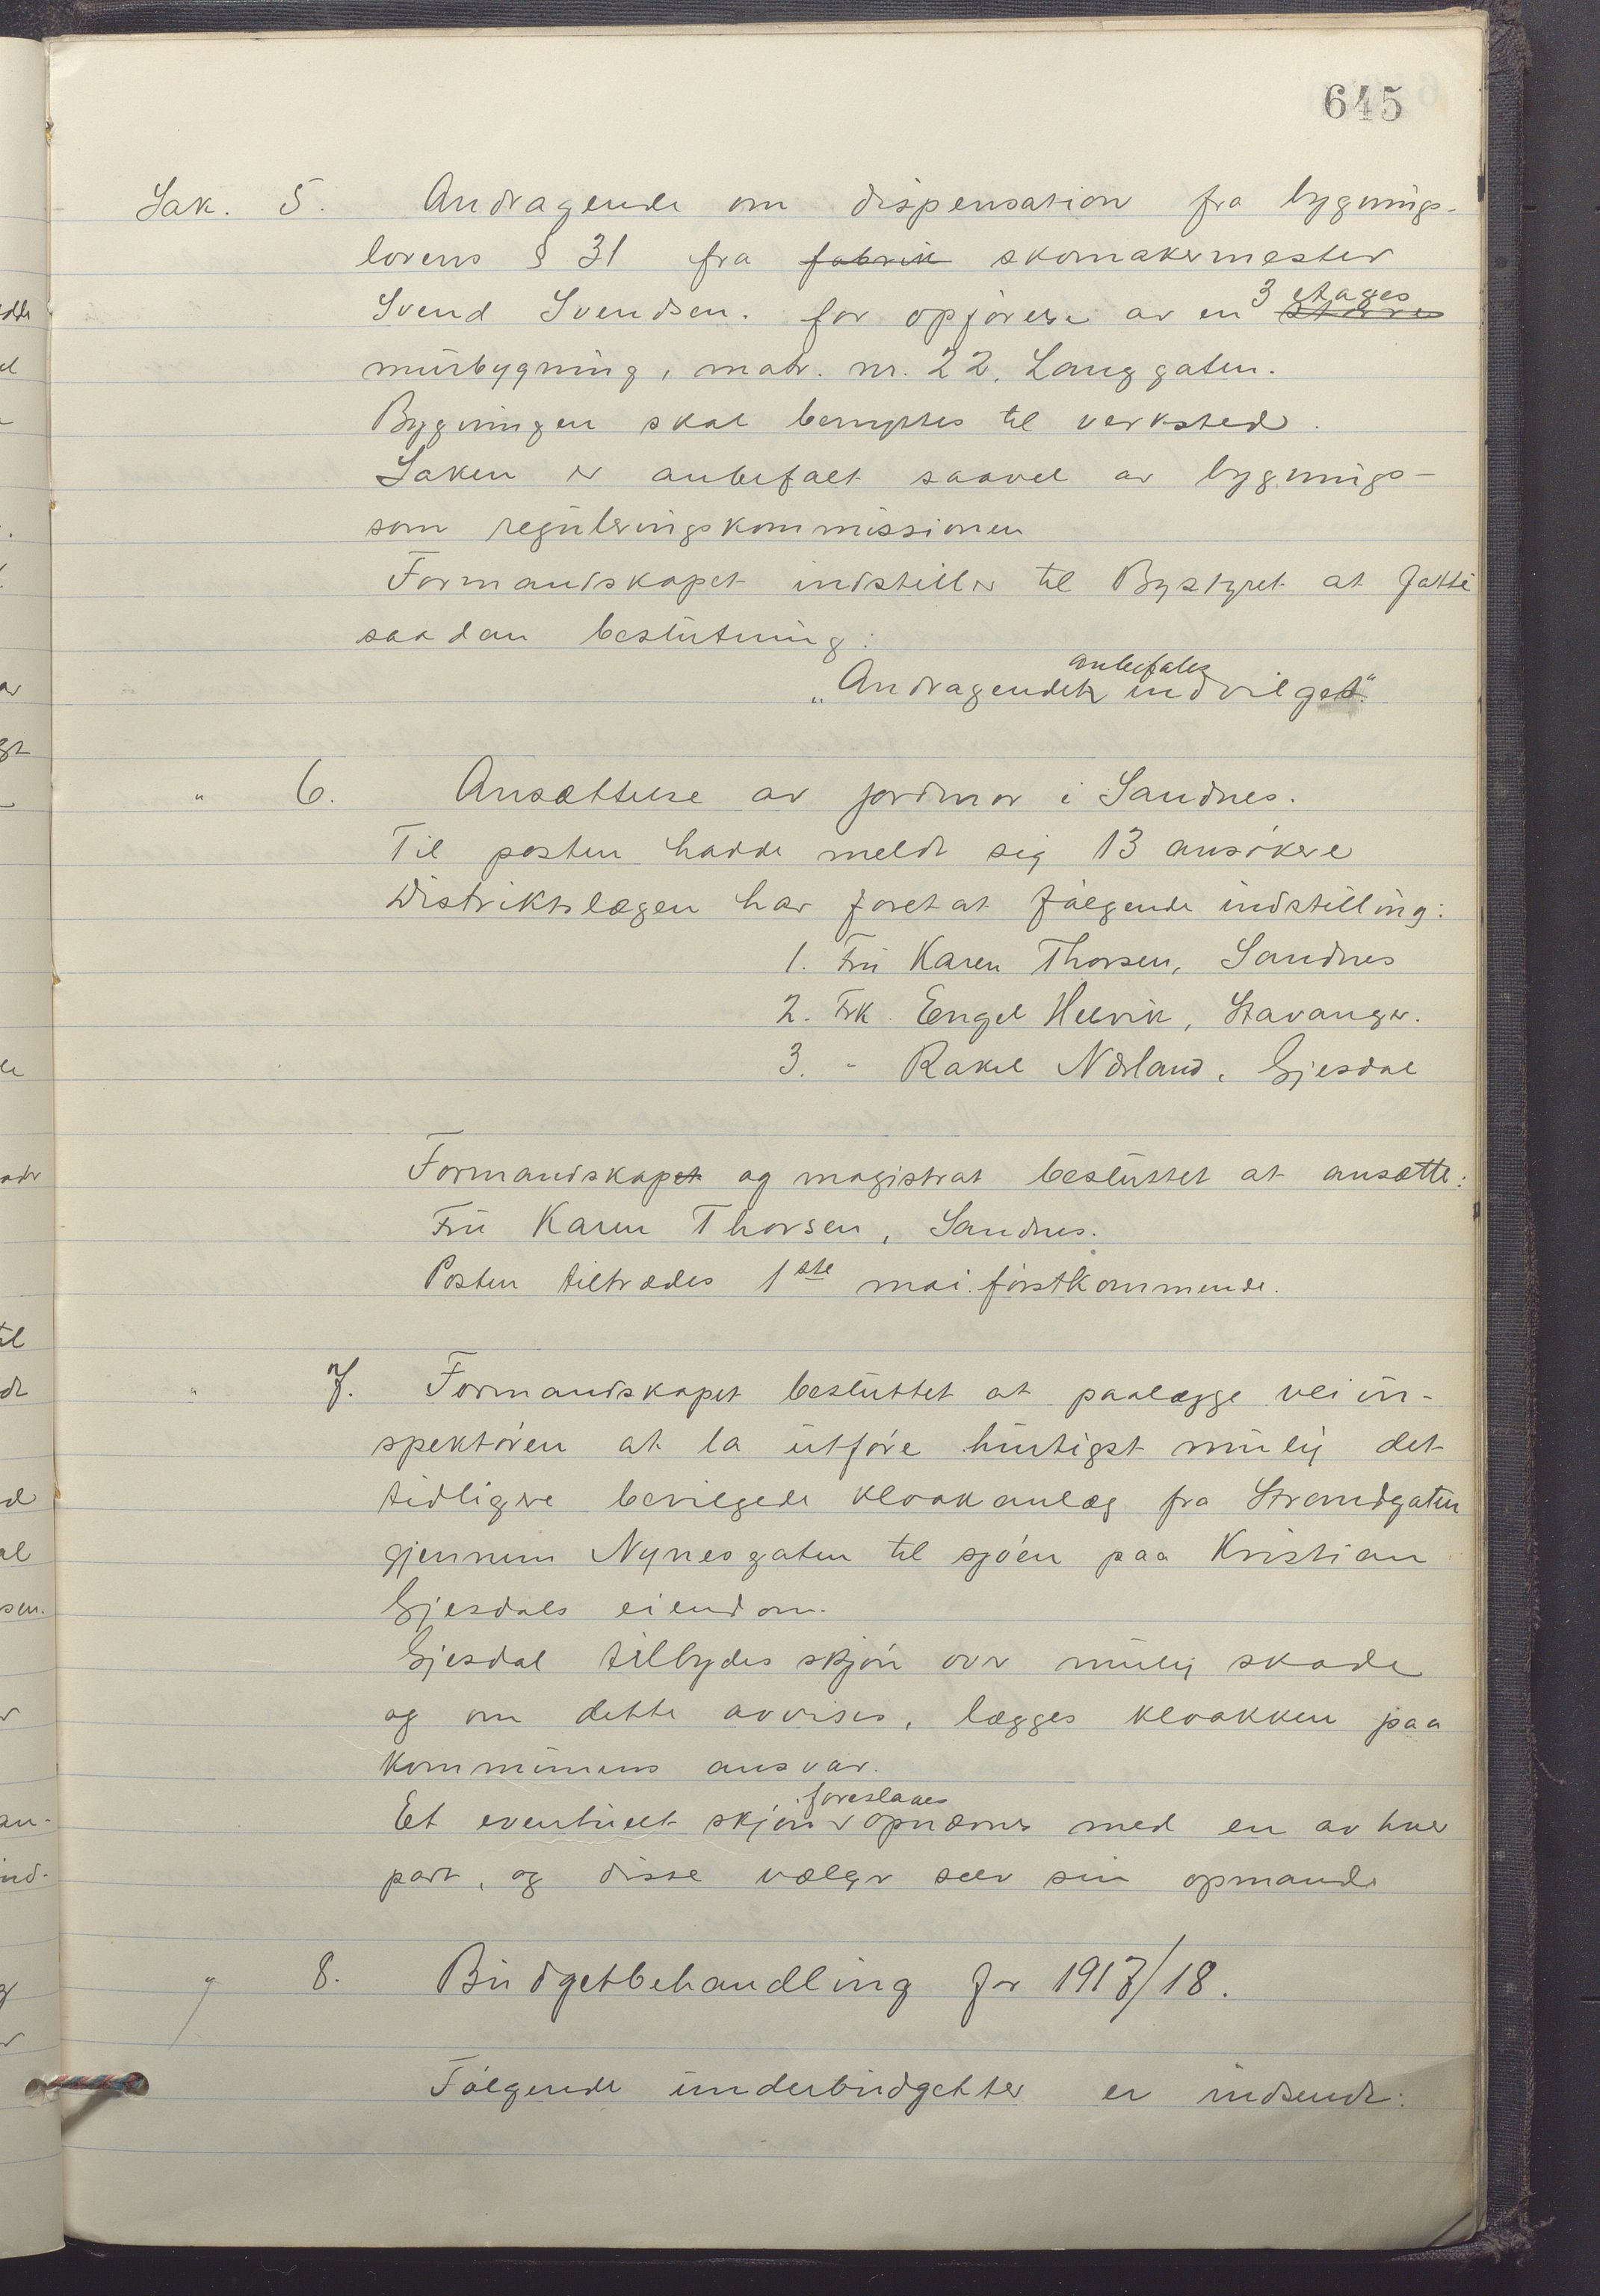 645
Sak. 5. Andragende om dispensation fra bygnings-
lovens § 31 fra fabrik skomakermester
Svend Svendsen. for opførelse av en 3 etages større
murbygning, matr. nr. 22, Langgaten.
Bygningen skal benyttes til verksted.
Saken er anbefalt saavel av bygnings-
som reguleringskommissionen
Formandskapet indstiller til Bystyret at fatte
saadan beslutning:
anbefales
„Andragendet indvilget."
" 6. Ansættelse av jordmor i Sandnes.
Til posten hadde meldt sig 13 ansøkere
Distriktslægen har foretat følgende indstilling:
1. Fru Karen Thorsen, Sandnes
2. Frk. Engel Helvik, Stavanger.
3. " Rakel Nærland, Gjesdal
Formandskapet og magistrat besluttet at ansætte:
Fru Karen Thorsen, Sandnes.
Posten tiltrædes 1ste mai førstkommende.
" 7. Formandskapet besluttet at paalægge veiin-
spektøren at la utføre hurtigst mulig det
tidligere bevilgede kloakanlæg fra Strandgaten
gjennem Nynesgaten til sjøen paa Kristian
Gjesdals eiendom.
Gjesdal tilbydes skjøn over mulig skade
og om dette avvises, lægges kloakken paa
kommunens ansvar.
foreslaaes
Et eventuelt skjøn opnævnes med en av hver
part, og disse vælger selv sin opmand
" 8. Budgetbehandling for 1917/18.
Følgende underbudgetter er indsendt: